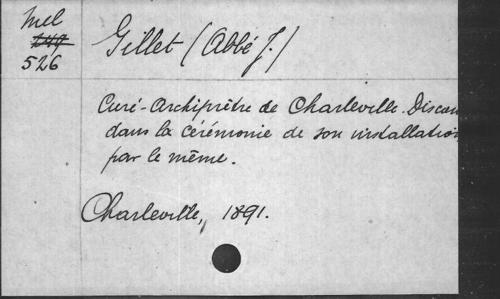 Mel
249
526
Gillet (Abbé J.)
Curé-Archiprêtre de Charleville. Discou
dans la cérémonie de son installation
par le même.
Charleville, 1891.